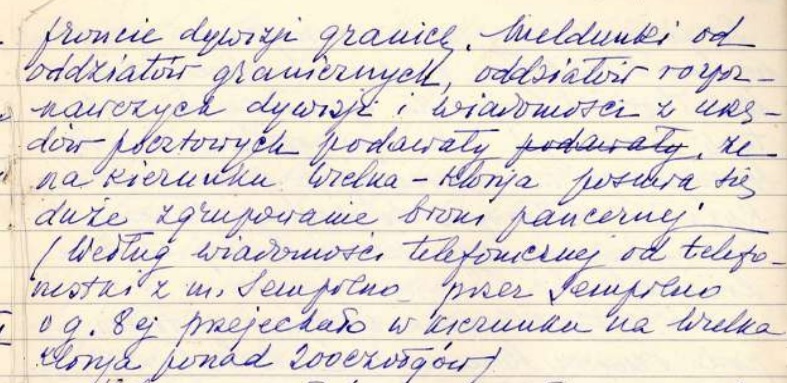 froncie dywizji granicę. Meldunki od
oddziałów granicznych, oddziałów rozpoz-
nawczych dywizji i wiadomości z urzę-
dów pocztowych podawały podawały, że
na kierunku Wielka-Klonja posuwa się
duże zgrupowanie broni pancernej
(Według wiadomości telefonicznej od telefo-
nistki z m. Sempolno przez Sempolno
o g. 8ej przejechało w kierunku na Wielka
Klonja ponad 200 czołgów)